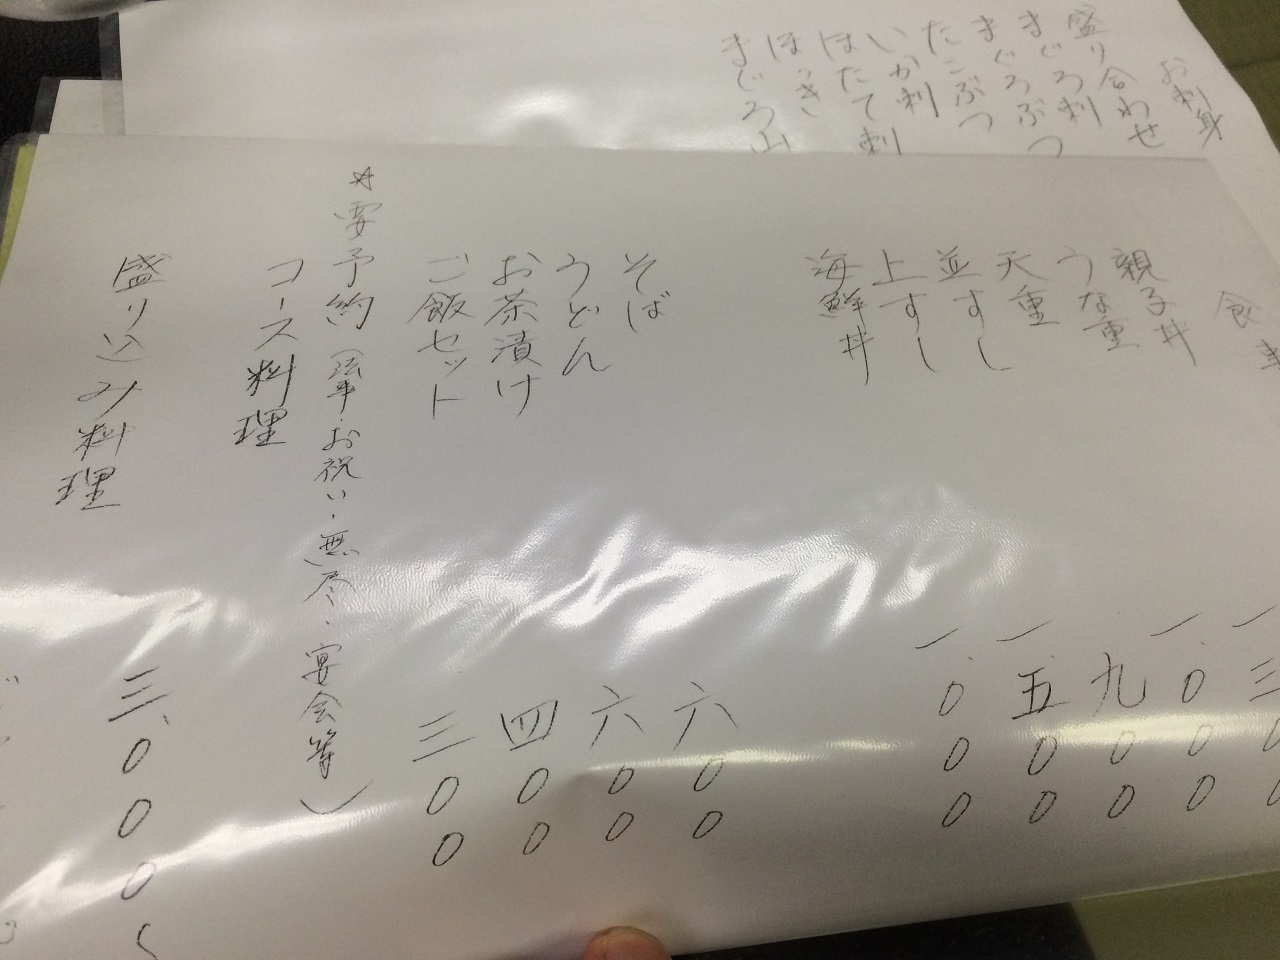 お刺身
盛り合わせ
まぐろ刺
まぐろぶつ
たこぶつ
いか刺
ほたて刺
ほっき
まぐろ山
食事
親子丼
うな重 一三
天重 一、000
並すし 九00
上すし 一、五00
海鮮丼 一、000
そば 六00
うどん 六00
お茶漬け 四00
ご飯セット 三00
☆要予約(法事・お祝い・無尽・宴会等)
コース料理 三、000〜
盛り込み料理